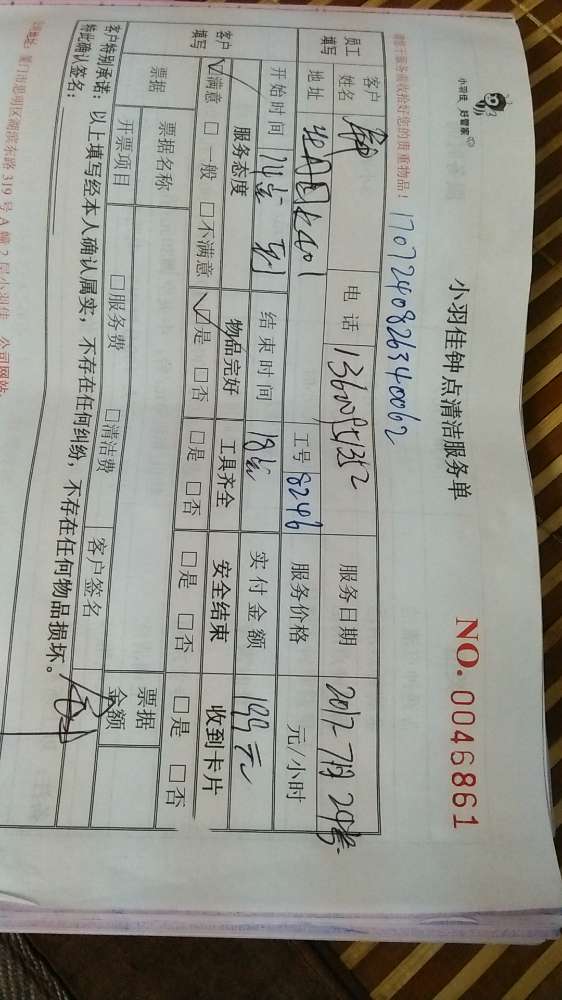 小羽佳 好管家
小羽佳钟点清洁服务单
NO. 0046861
请您于服务前收拾好您的贵重物品！ 1707240826340062
员工填写
客户姓名 电话 服务日期 2017-7月24号
地址 工号 8246 服务价格 元/小时
开始时间 14点 到 结束时间 18点 实付金额 199元
客户填写
服务态度 物品完好 工具齐全 安全结束 收到卡片
☑满意 □一般 □不满意 ☑是 □否 □是 □否 □是 □否 □是 □否
票据 票据名称 票据金额
开票项目 □服务费 □清洁费 客户签名
客户特别承诺：以上填写经本人确认属实，不存在任何纠纷，不存在任何物品损坏。
特此确认签名：
厦门市思明区湖滨东路319号A幢2层小羽佳 公司网站